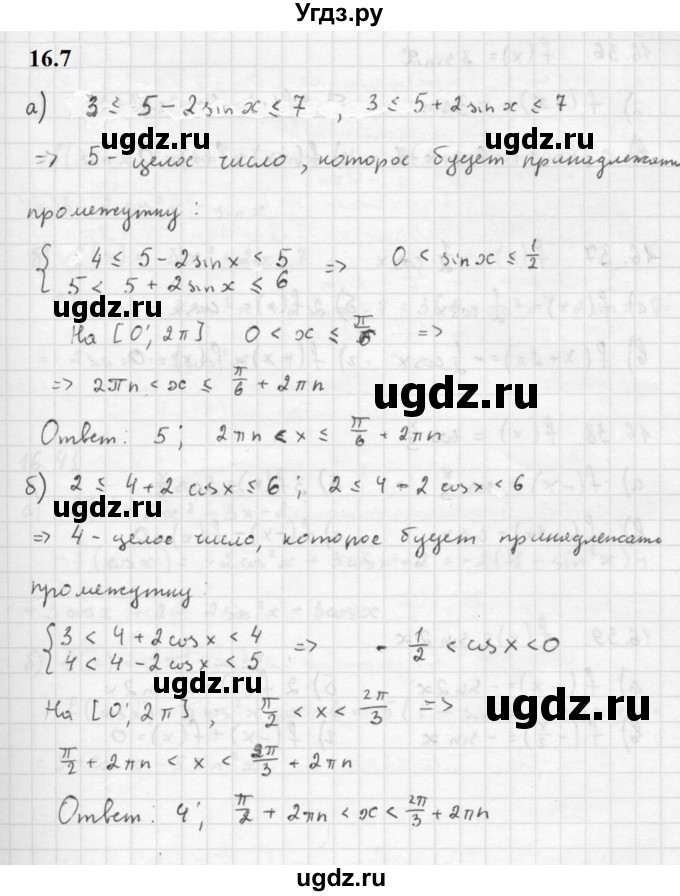 Угдз.ру
16.7
а) 3 ≤ 5 - 2 sin x ≤ 7 , 3 ≤ 5 + 2 sin x ≤ 7
ugdz.ru ugdz.ru
=> 5 - целое число, которое будет принадлежать
промежутку:
{ 4 ≤ 5 - 2 sin x < 5 => 0 < sin x ≤ 1/2
5 < 5 + 2 sin x ≤ 6
На [0; 2π] 0 < x ≤ π/6 =>
=> 2πn < x ≤ π/6 + 2πn
ugdz.ru
Ответ: 5; 2πn < x ≤ π/6 + 2πn
б) 2 ≤ 4 + 2 cos x ≤ 6 ; 2 ≤ 4 - 2 cos x < 6
ugdz.ru ugdz.ru
=> 4 - целое число, которое будет принадлежать
промежутку:
{ 3 < 4 + 2 cos x < 4 => - 1/2 < cos x < 0
4 < 4 - 2 cos x < 5
ugdz.ru
На [0; 2π] , π/2 < x < 2π/3 =>
ugdz.ru
π/2 + 2πn < x < 2π/3 + 2πn
Ответ: 4; π/2 + 2πn < x < 2π/3 + 2πn
ugdz.ru